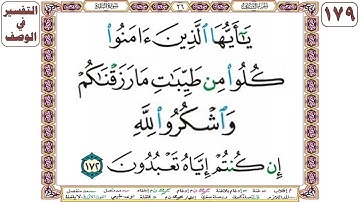 ١٧٩
التفسير
في
الوصف
٢٦
يَٰٓأَيُّهَا ٱلَّذِينَ ءَامَنُوا۟
كُلُوا۟ مِن طَيِّبَٰتِ مَا رَزَقْنَٰكُمْ
وَٱشْكُرُوا۟ لِلَّهِ
إِن كُنتُمْ إِيَّاهُ تَعْبُدُونَ ١٧٢